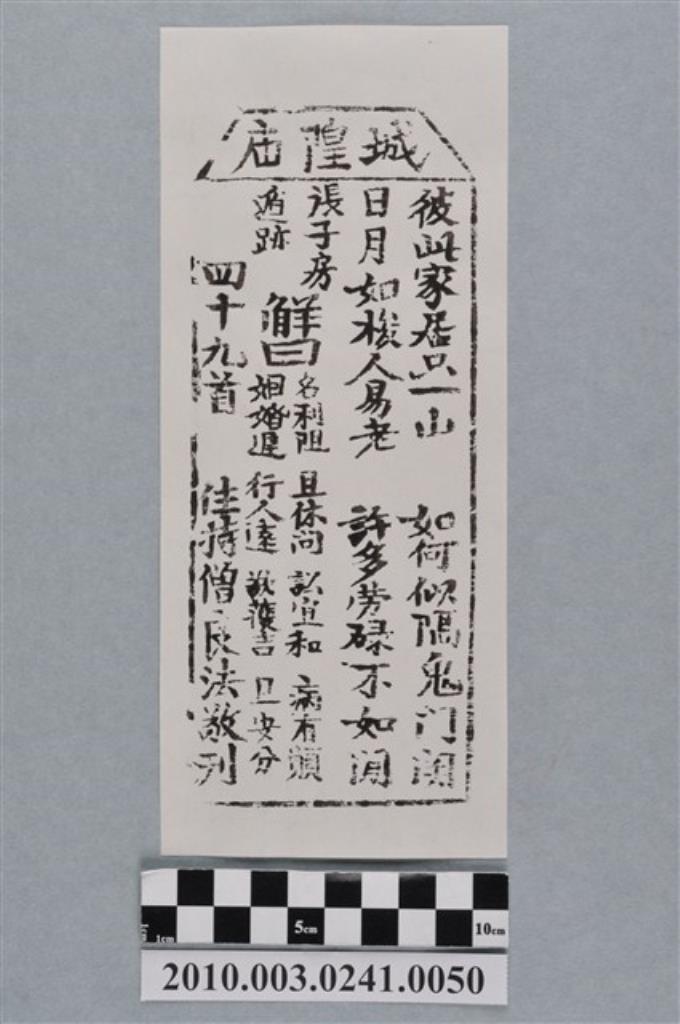 城隍庙
彼此家居只一山 如何似隔鬼门關
日月如梭人易老 許多劳碌不如閒
張子房
遁跡
解曰
名利阻 且休问 訟宜和 病有願
婚姻遲 行人遠 吉 且安分
四十九首 住持僧良法敬刋
1cm 5cm 10cm
2010.003.0241.0050